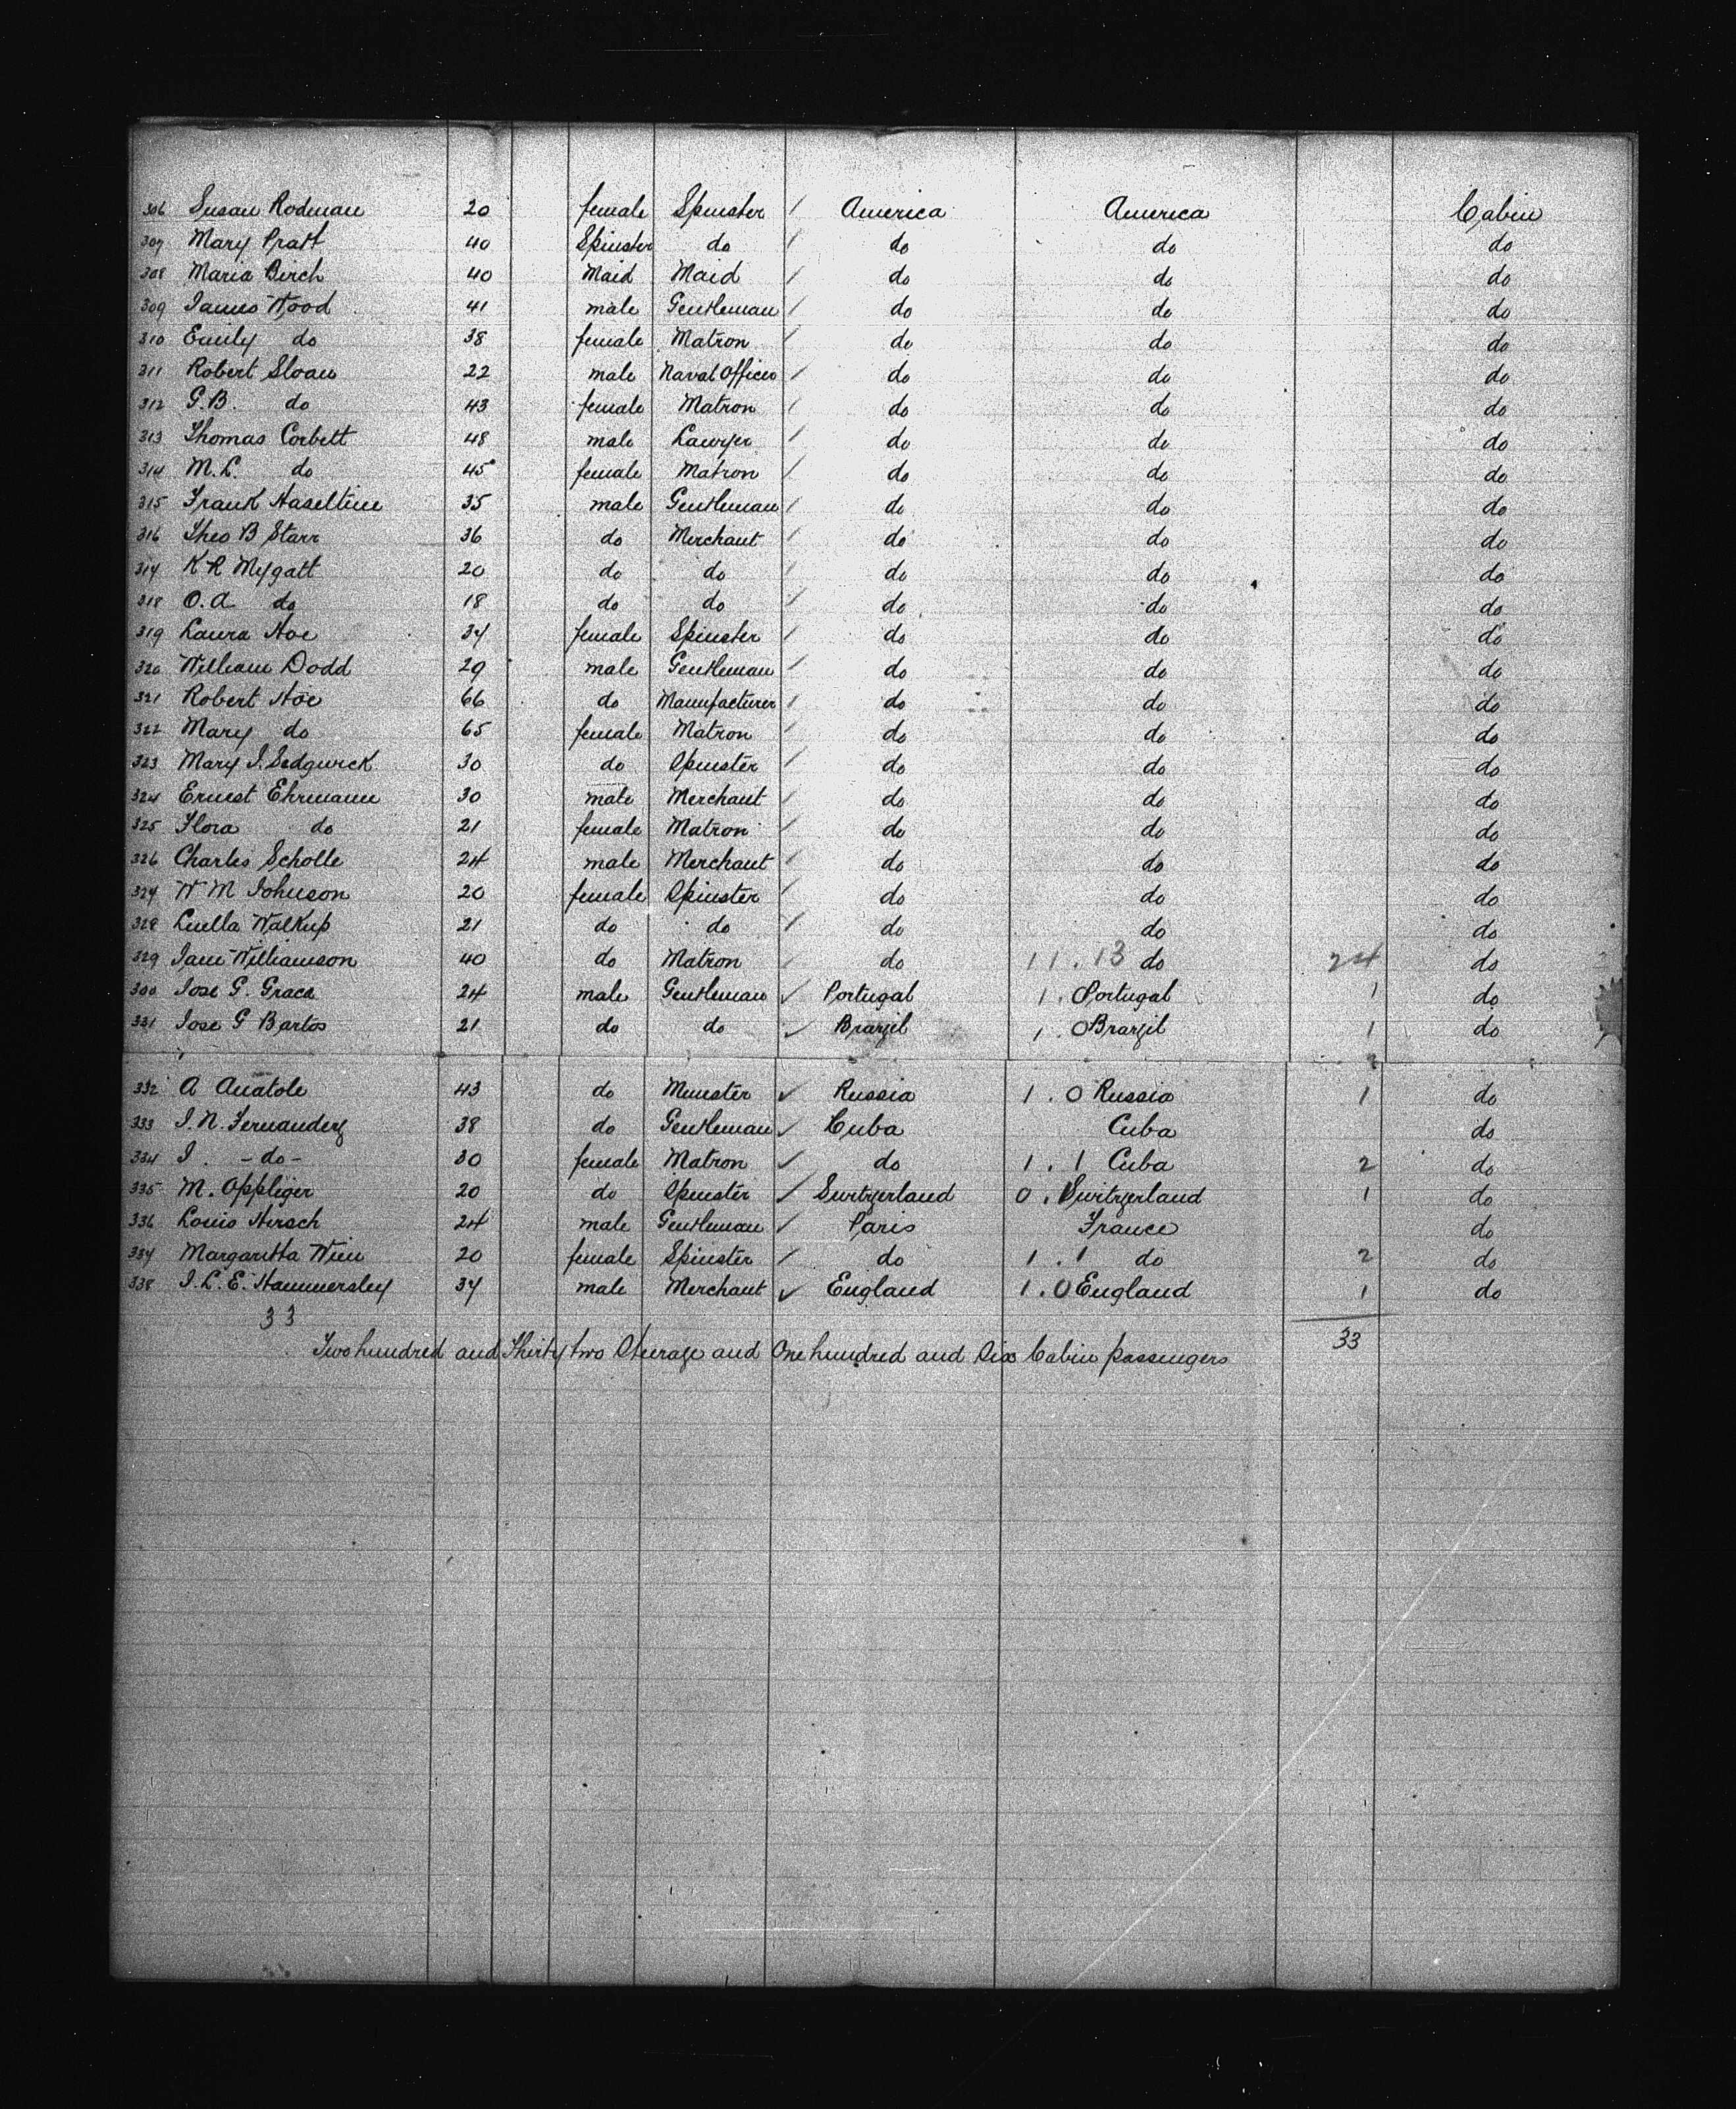 306 Susan Rodman 20 female Spinster / America America Cabin
307 Mary Pratt 40 Spinster do / do do do
308 Maria Birch 40 Maid Maid / do do do
309 James Wood 41 male Gentleman / do do do
310 Emily do 38 female Matron / do do do
311 Robert Sloan 22 male Naval Officer / do do do
312 G.B. do 43 female Matron / do do do
313 Thomas Corbett 48 male Lawyer / do do do
314 M.L. do 45 female Matron / do do do
315 Frank Haseltine 35 male Gentleman / do do do
316 Theo B Starr 36 do Merchant / do do do
317 K R Mygatt 20 do do / do do do
318 O.A. do 18 do do / do do do
319 Laura Hoe 37 female Spinster / do do do
320 William Dodd 29 male Gentleman / do do do
321 Robert Hoe 66 do Manufacturer / do do do
322 Mary do 65 female Matron / do do do
323 Mary I. Sedgwick 30 do Spinster / do do do
324 Ernest Ehrmann 30 male Merchant / do do do
325 Flora do 21 female Matron / do do do
326 Charles Scholle 24 male Merchant / do do do
327 W M Johnson 20 female Spinster / do do do
328 Luella Walkup 21 do do / do do do
329 Jane Williamson 40 do Matron / do 11 . 13 do 24 do
330 Jose G. Graca 24 male Gentleman ✓ Portugal 1 . 0 Portugal 1 do
331 Jose G Bartos 21 do do ✓ Brazil 1 . 0 Brazil 1 do
332 A Anatole 43 do Minister ✓ Russia 1 . 0 Russia 1 do
333 J. N. Fernandez 38 do Gentleman ✓ Cuba Cuba do
334 J. - do - 30 female Matron ✓ do 1 . 1 Cuba 2 do
335 M. Oppliger 20 do Spinster ✓ Switzerland 0 . 1 Switzerland 1 do
336 Louis Hirsch 24 male Gentleman ✓ Paris France do
337 Margaritta Wien 20 female Spinster / do 1 . 1 do 2 do
338 J. L. E. Hammersley 37 male Merchant ✓ England 1 . 0 England 1 do
33
33
Two hundred and Thirty two Steerage and One hundred and Six Cabin passengers